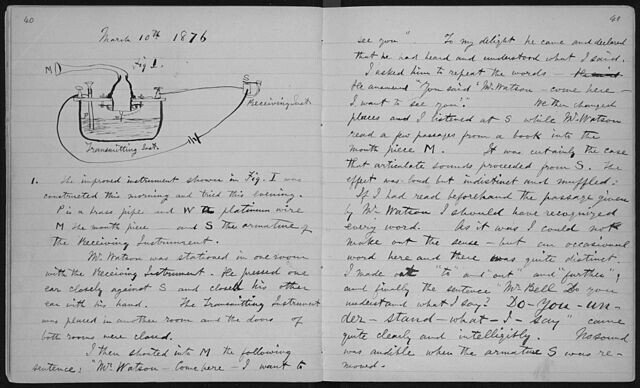 40
March 10th 1876
Fig 1.
M
S
Receiving Inst
W
P
Transmitting Inst
1. The improved instrument shown in Fig. I was
constructed this morning and tried this evening.
P is a brass pipe and W the platinum wire
M the mouth piece and S the armature of
the Receiving Instrument.
Mr. Watson was stationed in one room
with the Receiving Instrument. He pressed one
ear closely against S and closed his other
ear with his hand. The Transmitting Instrument
was placed in another room and the doors of
both rooms were closed.
I then shouted into M the following
sentence: "Mr. Watson - Come here - I want to
41
see you". To my delight he came and declared
that he had heard and understood what I said.
I asked him to repeat the words -
He answered "You said 'Mr. Watson - come here -
I want to see you'." We then changed
places and I listened at S while Mr. Watson
read a few passages from a book into the
mouth piece M. It was certainly the case
that articulate sounds proceeded from S. The
effect was loud but indistinct and muffled.
If I had read beforehand the passage given
by Mr. Watson I should have recognized
every word. As it was I could not
make out the sense - but an occasional
word here and there was quite distinct.
I made out "to" and "out" and "further";
and finally the sentence "Mr. Bell Do you
understand what I say? Do-You-un-
der-stand-what-I-say" came
quite clearly and intelligibly. No sound
was audible when the armature S was re-
moved.